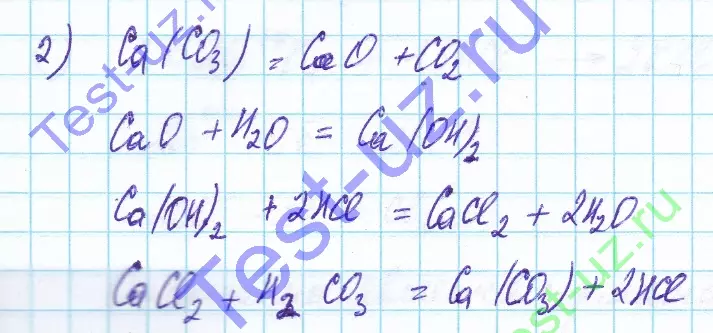 2) Ca(CO₃) = CaO + CO₂
CaO + H₂O = Ca(OH)₂
Ca(OH)₂ + 2HCl = CaCl₂ + 2H₂O
CaCl₂ + H₂CO₃ = Ca(CO₃) + 2HCl
Test-uz.ru
Test-uz.ru
Test-uz.ru